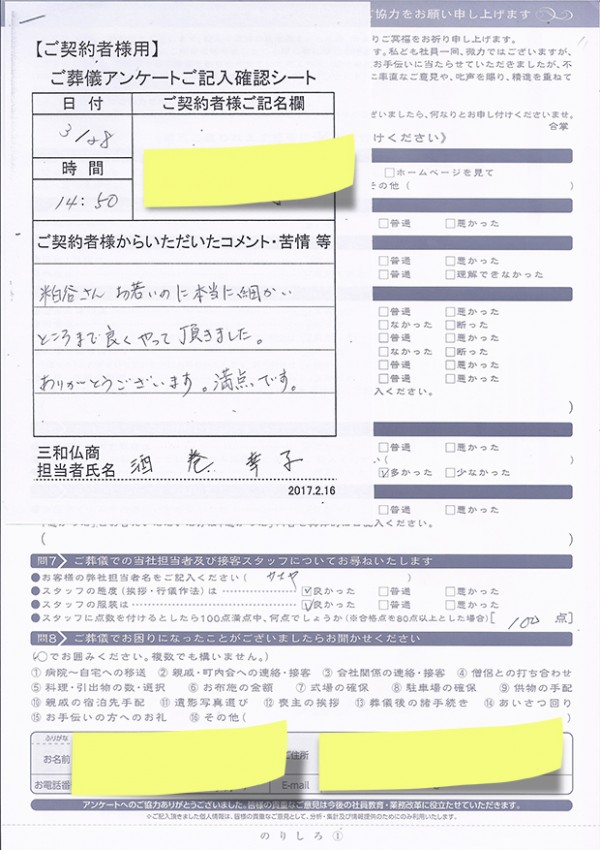 ご協力をお願い申し上げます
【ご契約者様用】
ご葬儀アンケートご記入確認シート
日付
ご契約者様ご記名欄
3/28
時間
14:50
ご契約者様からいただいたコメント・苦情 等
粕谷さん お若いのに本当に細かい
ところまで良くやって頂きました。
ありがとうございます。満点です。
三和仏商
担当者氏名 酒巻 幸子
2017.2.16
りご冥福をお祈り申し上げます。
す。私ども社員一同、微力ではございますが、
お手伝いに当たらせていただきましたが、不
に率直なご意見や、叱声を賜り、精進を重ねて
ざいましたら、何なりとお申し付けくださいませ。
合掌
けください》
□ホームページを見て
その他（ ）
□普通 □悪かった
□普通 □悪かった
□普通 □理解できなかった
□普通 □悪かった
□なかった □断った
□普通 □悪かった
□なかった □断った
□普通 □悪かった
□普通 □悪かった
入ください。
）
□普通 □悪かった
（ ）
☑多かった □少なかった
□普通 □悪かった
入ください。
（ ）
問7 ご葬儀での当社担当者及び接客スタッフについてお尋ねいたします
●お客様の弊社担当者名をご記入ください（ ）
●スタッフの態度（挨拶・行儀作法）は ☑良かった □普通 □悪かった
●スタッフの服装は ☑良かった □普通 □悪かった
●スタッフに点数を付けるとしたら100点満点中、何点でしょうか（※合格点を80点以上とした場合）[ 100 点]
問8 ご葬儀でお困りになったことがございましたらお聞かせください
（○でお囲みください。複数でも構いません。）
① 病院〜自宅への移送 ② 親戚・町内会への連絡・接客 ③ 会社関係の連絡・接客 ④ 僧侶との打ち合わせ
⑤ 料理・引出物の数・選択 ⑥ お布施の金額 ⑦ 式場の確保 ⑧ 駐車場の確保 ⑨ 供物の手配
⑩ 親戚の宿泊先手配 ⑪ 遺影写真選び ⑫ 喪主の挨拶 ⑬ 葬儀後の諸手続き ⑭ あいさつ回り
⑮ お手伝いの方へのお礼 ⑯ その他（ ）
ふりがな
お名前
ご住所
お電話番
E-mail
アンケートへのご協力ありがとうございました。皆様の貴重なご意見は今後の社員教育・業務改革に役立たせていただきます。
※ご記入頂きました個人情報は、皆様の貴重なご意見として、分析・集計及び情報提供のためにのみ利用いたします。
のりしろ①